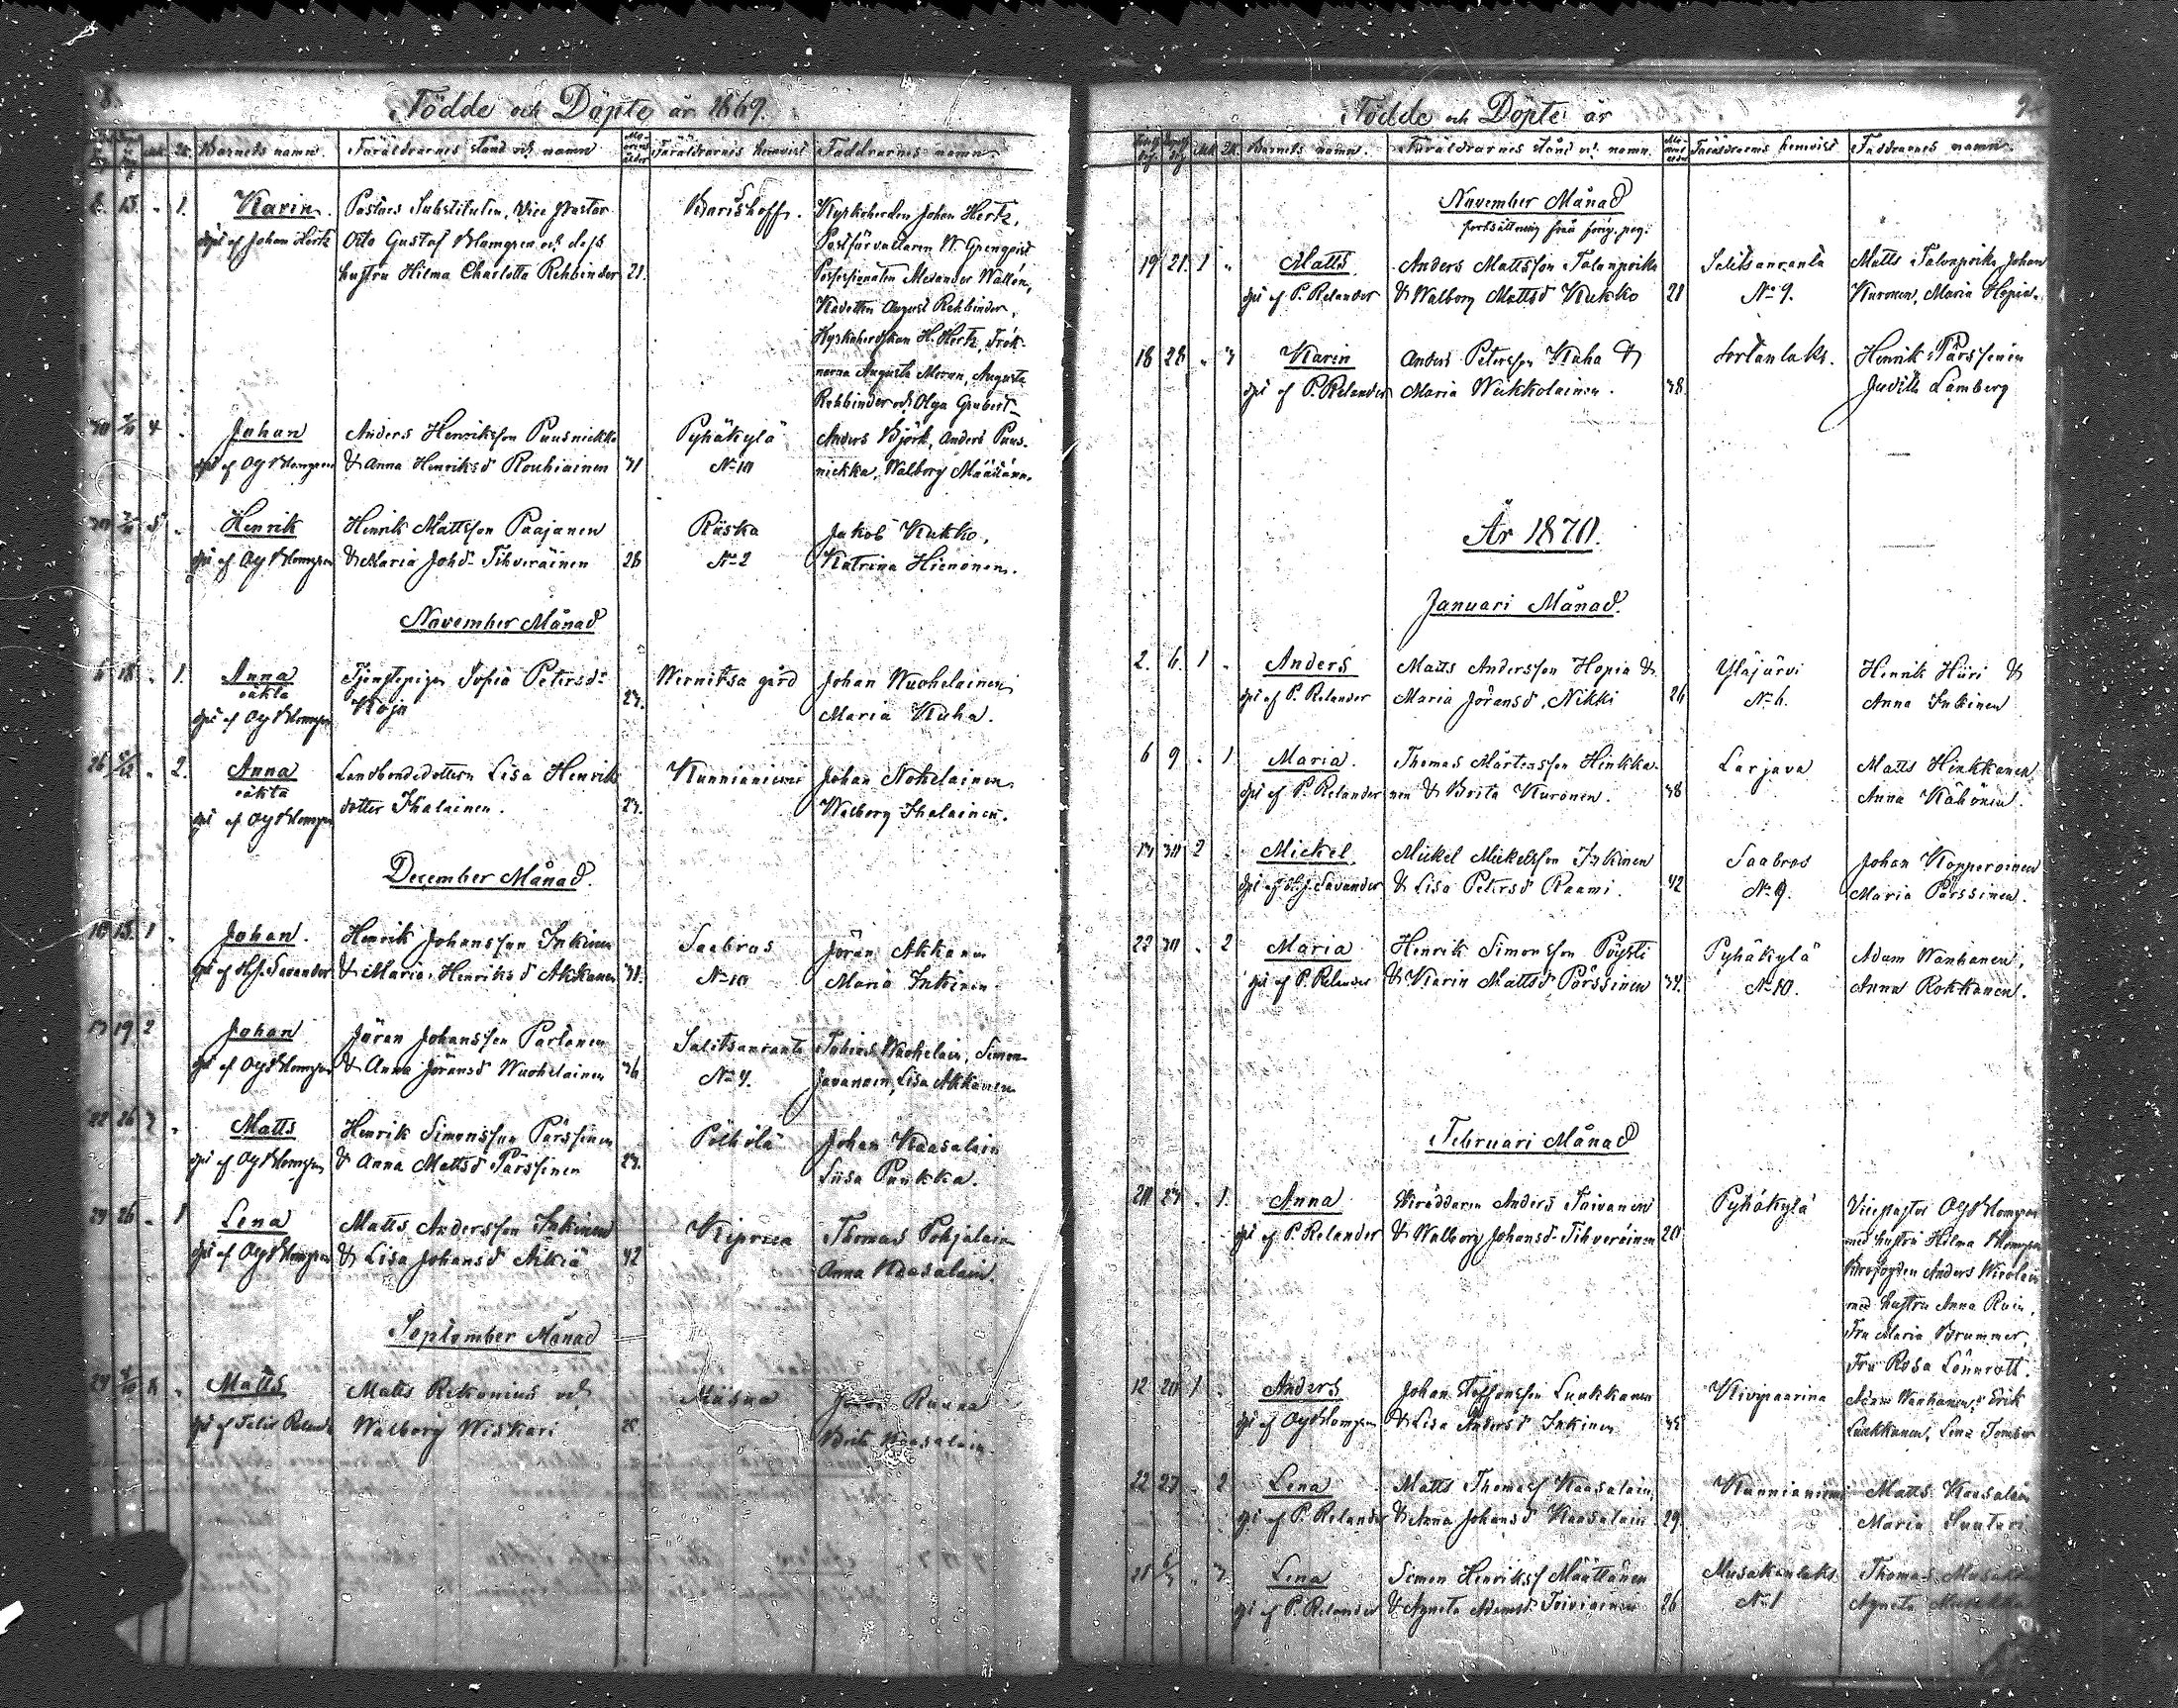 8.
Födde och Döpte år 1869.
Barnets namn. Föräldrarnes stånd och namn Föräldrarnes hemvist Faddrarnes namn.
8. 13. 1. Karin. Pastors Substituten, Vice Pastor Barishoff. Kyrkoherden Johan Hertz,
döpt af Johan Hertz Otto Gustaf Blomgren och dess Postförvaltaren W. Grenqvist
hustru Hilma Charlotta Rehbinder 21. Possessionaten Alexander Wallén,
Kadetten August Rehbinder,
Kyrkoherdskan H. Hertz, Frök-
narna Augusta Meran, Augusta
Rehbinder och Olga Grubert
30 4 Johan Anders Henriksson Puusniekka Pyhäkylä Anders Björk, Anders Puus-
döpt af OGBlomgren & Anna Henriksd Rouhiainen 31 No 10 niekka, Walborg Määtänn.
30 5 Henrik Henrik Mattsson Paajanen Riiska Jakob Kukko,
döpt af OGBlomgren & Maria Johsd Tihveräinen 28 No 2 Katrina Hienonen.
November Månad
18 1. Anna Tjenstepigan Sofia Petersdr Wernitsa gård Johan Wuohelainen
oäkta Koja 23. Maria Kuha.
döpt af OGBlomgren
26 2. Anna Landbondedottern Lisa Henriks Kunnianiemi Johan Nohelainen
oäkta dotter Ihalainen. 23. Walborg Ihalainen.
döpt af OGBlomgren
December Månad.
10 13. 1 Johan. Henrik Johansson Inkinen Saabras Jöran Akkanen
döpt af H.J. Savander & Maria Henriksd Akkanen 31. No 10 Maria Inkinen
13 19 2 Johan Jöran Johansson Partanen Salitsanranta Tobias Wuohelain, Simon
döpt af OGBlomgren & Anna Jöransd Wuohelainen 36 No 4. Javanain, Lisa Akkanen
22 26 3 Matts Henrik Simonsson Pärssinen Pölhölä Johan Kaasalain
döpt af OGBlomgren & Anna Mattsd Pärssinen 23. Liisa Puukka.
24 26 1 Lena Matts Andersson Inkinen Kiprua Thomas Pohjalain
döpt af OGBlomgren & Lisa Johansd Äikiä 42 Anna Kaasalain.
September Månad
Matts Matts Rekonius och Ruuna
döpt af Felix Relander Walborg Wiskari Brita Kaasalain.
9.
Födde och Döpte år
Barnets namn. Föräldrarnes stånd och namn. Föräldrarnes hemvist Faddrarnes namn.
November Månad
fortsättning från föreg. pag.
19 21. 1 Matts Anders Mattsson Talonpoika Salitsanranta Matts Talonpoika, Johan
döpt af P. Relander & Walborg Mattsd Kukko 28 No 9. Kuronen, Maria Hopia.
18 28 3 Karin Anders Petersson Kuha & Sortanlaks. Henrik Pärssinen
döpt af P. Relander Maria Weikkolainen. 38. Judith Lamberg
År 1870.
Januari Månad.
2. 6. 1 Anders Matts Andersson Hopia & Yläjärvi Henrik Hüri &
döpt af P. Relander Maria Jöransd. Nikki 26 No 6. Anna Inkinen
6 9 1 Maria. Thomas Mårtensson Hinkka- Larjava Matts Hinkkanen
döpt af P. Relander nen & Brita Kuronen. 38 Anna Kähönen.
13 30 2 Mickel Mickel Mickelsson Inkinen Saabras Johan Kopperoinen
döpt af H.J. Savander & Lisa Petersd Raami. 42 No 9. Maria Pärssinen.
22 30 2 Maria Henrik Simonsson Pöysti Pyhäkylä Adam Wanhanen,
döpt af P. Relander & Karin Mattsd Pärssinen 34. No 10. Anna Rokkanen.
Februari Månad
20 23 1. Anna Skräddaren Anders Taivanen Pyhäkylä Vicepastor OGBlomgren
döpt af P. Relander & Walborg Johansd Tihveräinen 20 med hustru Hilma Blomgren
Anders Wirolain
med hustru Anna Rein,
Fru Maria Brummer,
Fru Rosa Lönnrott.
12 20 1 Anders Johan Staffansson Luukkanen Kivipaarina Adam Wanhanen, Erik
döpt af OGBlomgren & Lisa Andersd Inkinen 35 Luukkanen, Lena Tomber
22 27 2 Lena Matts Thomass Kaasalain Kunnianiemi Matts Kaasalain
döpt af P. Relander & Anna Johansd Kaasalain 29 Maria Suutari
25 3 Lena Simon Henrikss Määttänen Musakanlaks Thomas
döpt af P. Relander & Agneta Adamsd. Toiviainen 26 No 1 Agneta